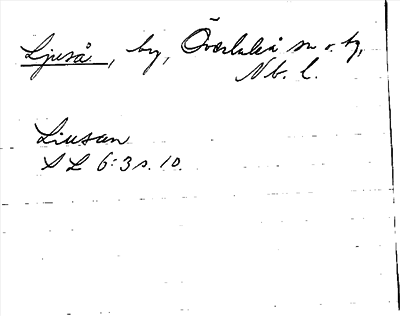 Ljuså, by, Överluleå sn o. tg,
Nb. l.
Liusan
SL 6:3 s. 10.